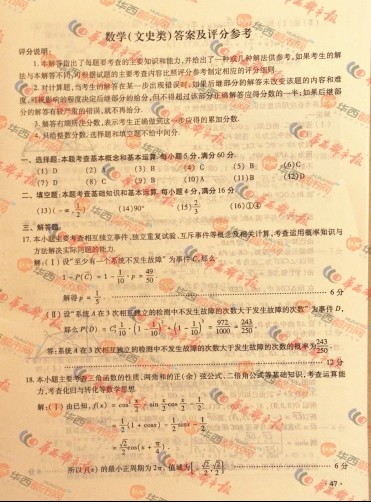 数学(文史类)答案及评分参考
评分说明:
1.本解答指出了每题要考查的主要知识和能力,并给出了一种或几种解法供参考,如果考生的解
法与本解答不同,可根据试题的主要考查内容比照评分参考制定相应的评分细则.
2.对计算题,当考生的解答在某一步出现错误时,如果后继部分的解答未改变该题的内容和难
度,可视影响的程度决定后继部分的给分,但不得超过该部分正确解答应得分数的一半;如果后继部
分的解答有较严重的错误,就不再给分.
3.解答右端所注分数,表示考生正确做到这一步应得的累加分数.
4.只给整数分数,选择题和填空题不给中间分.
一、选择题:本题考查基本概念和基本运算.每小题5分,满分60分.
(1) D (2) B (3) C (4) D (5) B (6) C
(7) D (8) C (9) A (10) B (11) B (12) D
二、填空题:本题考查基础知识和基本运算.每小题4分,满分16分.
(13) (14)90° (15) 2/3 (16)①④
三、解答题
17.本小题主要考查相互独立事件,独立重复试验、互斥事件等概念及相关计算,考查运用概率知识与
方法解决实际问题的能力.
解:(Ⅰ)设“至少有一个系统不发生故障”为事件C,那么
1-P(C)=1-1/10·p=49/50
解得p=1/5 6分
(Ⅱ)设“系统A在3次相互独立的检测中不发生故障的次数大于发生故障的次数”为事件D,
那么P(D)=
=972/1000=243/250
答:系统A在3次相互独立的检测中不发生故障的次数大于发生故障的次数的概率为243/250
12分
18.本小题主要考查三角函数的性质、两角和的正(余)弦公式、二倍角公式等基础知识,考查运算能
力,考查化归与转化等数学思想.
解:(Ⅰ)由已知,f(x)=cos²x/2-sin x/2 cos x/2-1/2
=1/2(1+cosx)-1/2sinx-1/2
=√2/2cos(x+π/4).
所以f(x)的最小正周期为2π,值域为[-√2/2,√2/2] 6分
47·